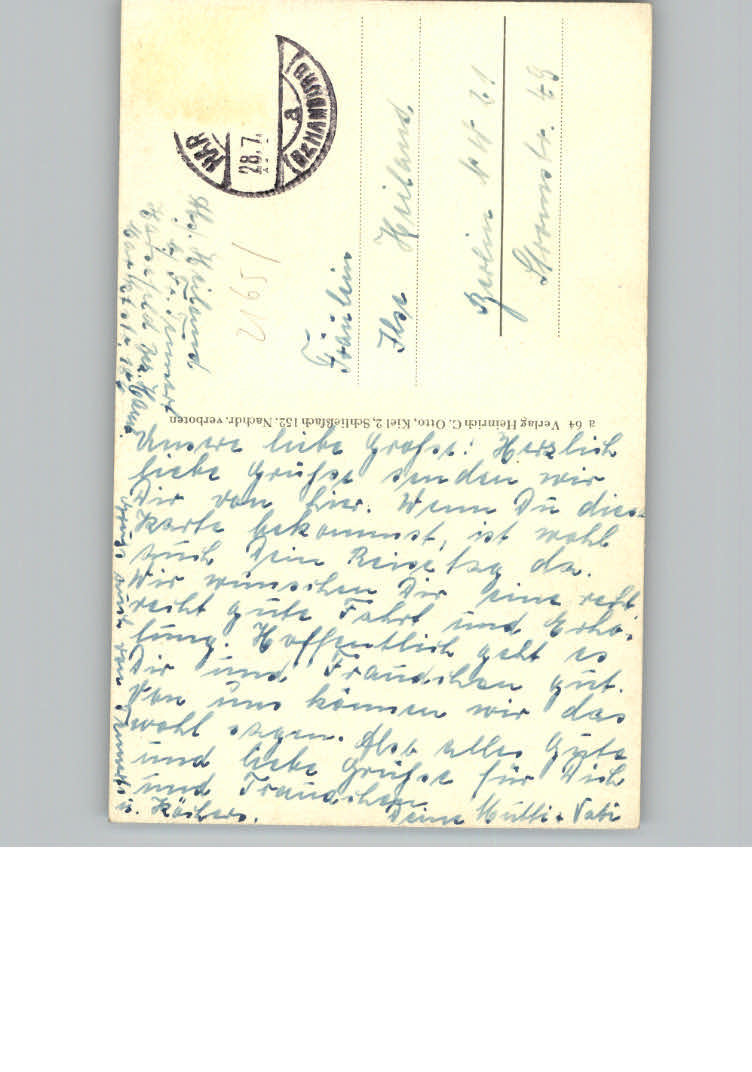 Unsere liebe Große! Herzlich
liebe Grüße senden wir
Dir von hier. Wenn Du diese
Karte bekommst, ist wohl
auch Dein Reisetag da.
Wir wünschen Dir eine recht
recht gute Fahrt und Erho-
lung. Hoffentlich geht es
Dir und Traudchen gut.
Von uns können wir das
wohl sagen. Also alles Gute
und liebe Grüße für Dich
und Traudchen
Deine Mutti + Vati
auch von
u. Köchers.
a 64 Verlag Heinrich C. Otto, Kiel 2, Schließfach 152. Nachdr. verboten
HAR
(BZ HAMBURG)
28.7.
a
Heiland
b/
2165/
Fräulein
Ilse Heiland
Berlin NW 21
Stromstr. 49